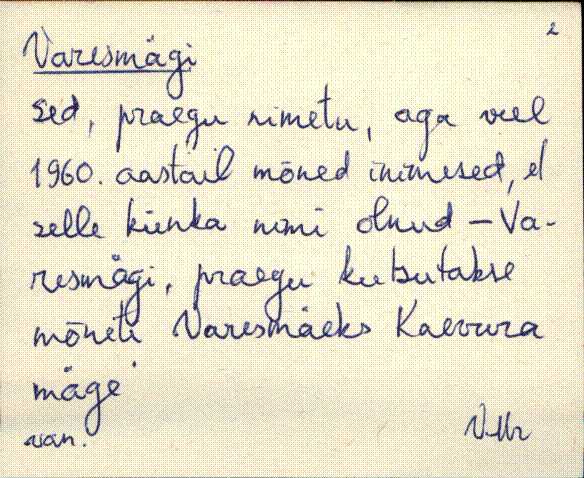 2
Varesmägi
sed, praegu nimetu, aga veel
1960. aastail mõned inimesed, et
selle künka nimi olnud – Va-
resmägi, praegu kutsutakse
mõneti Varesmäeks Kaevura
mäge
van. VMr